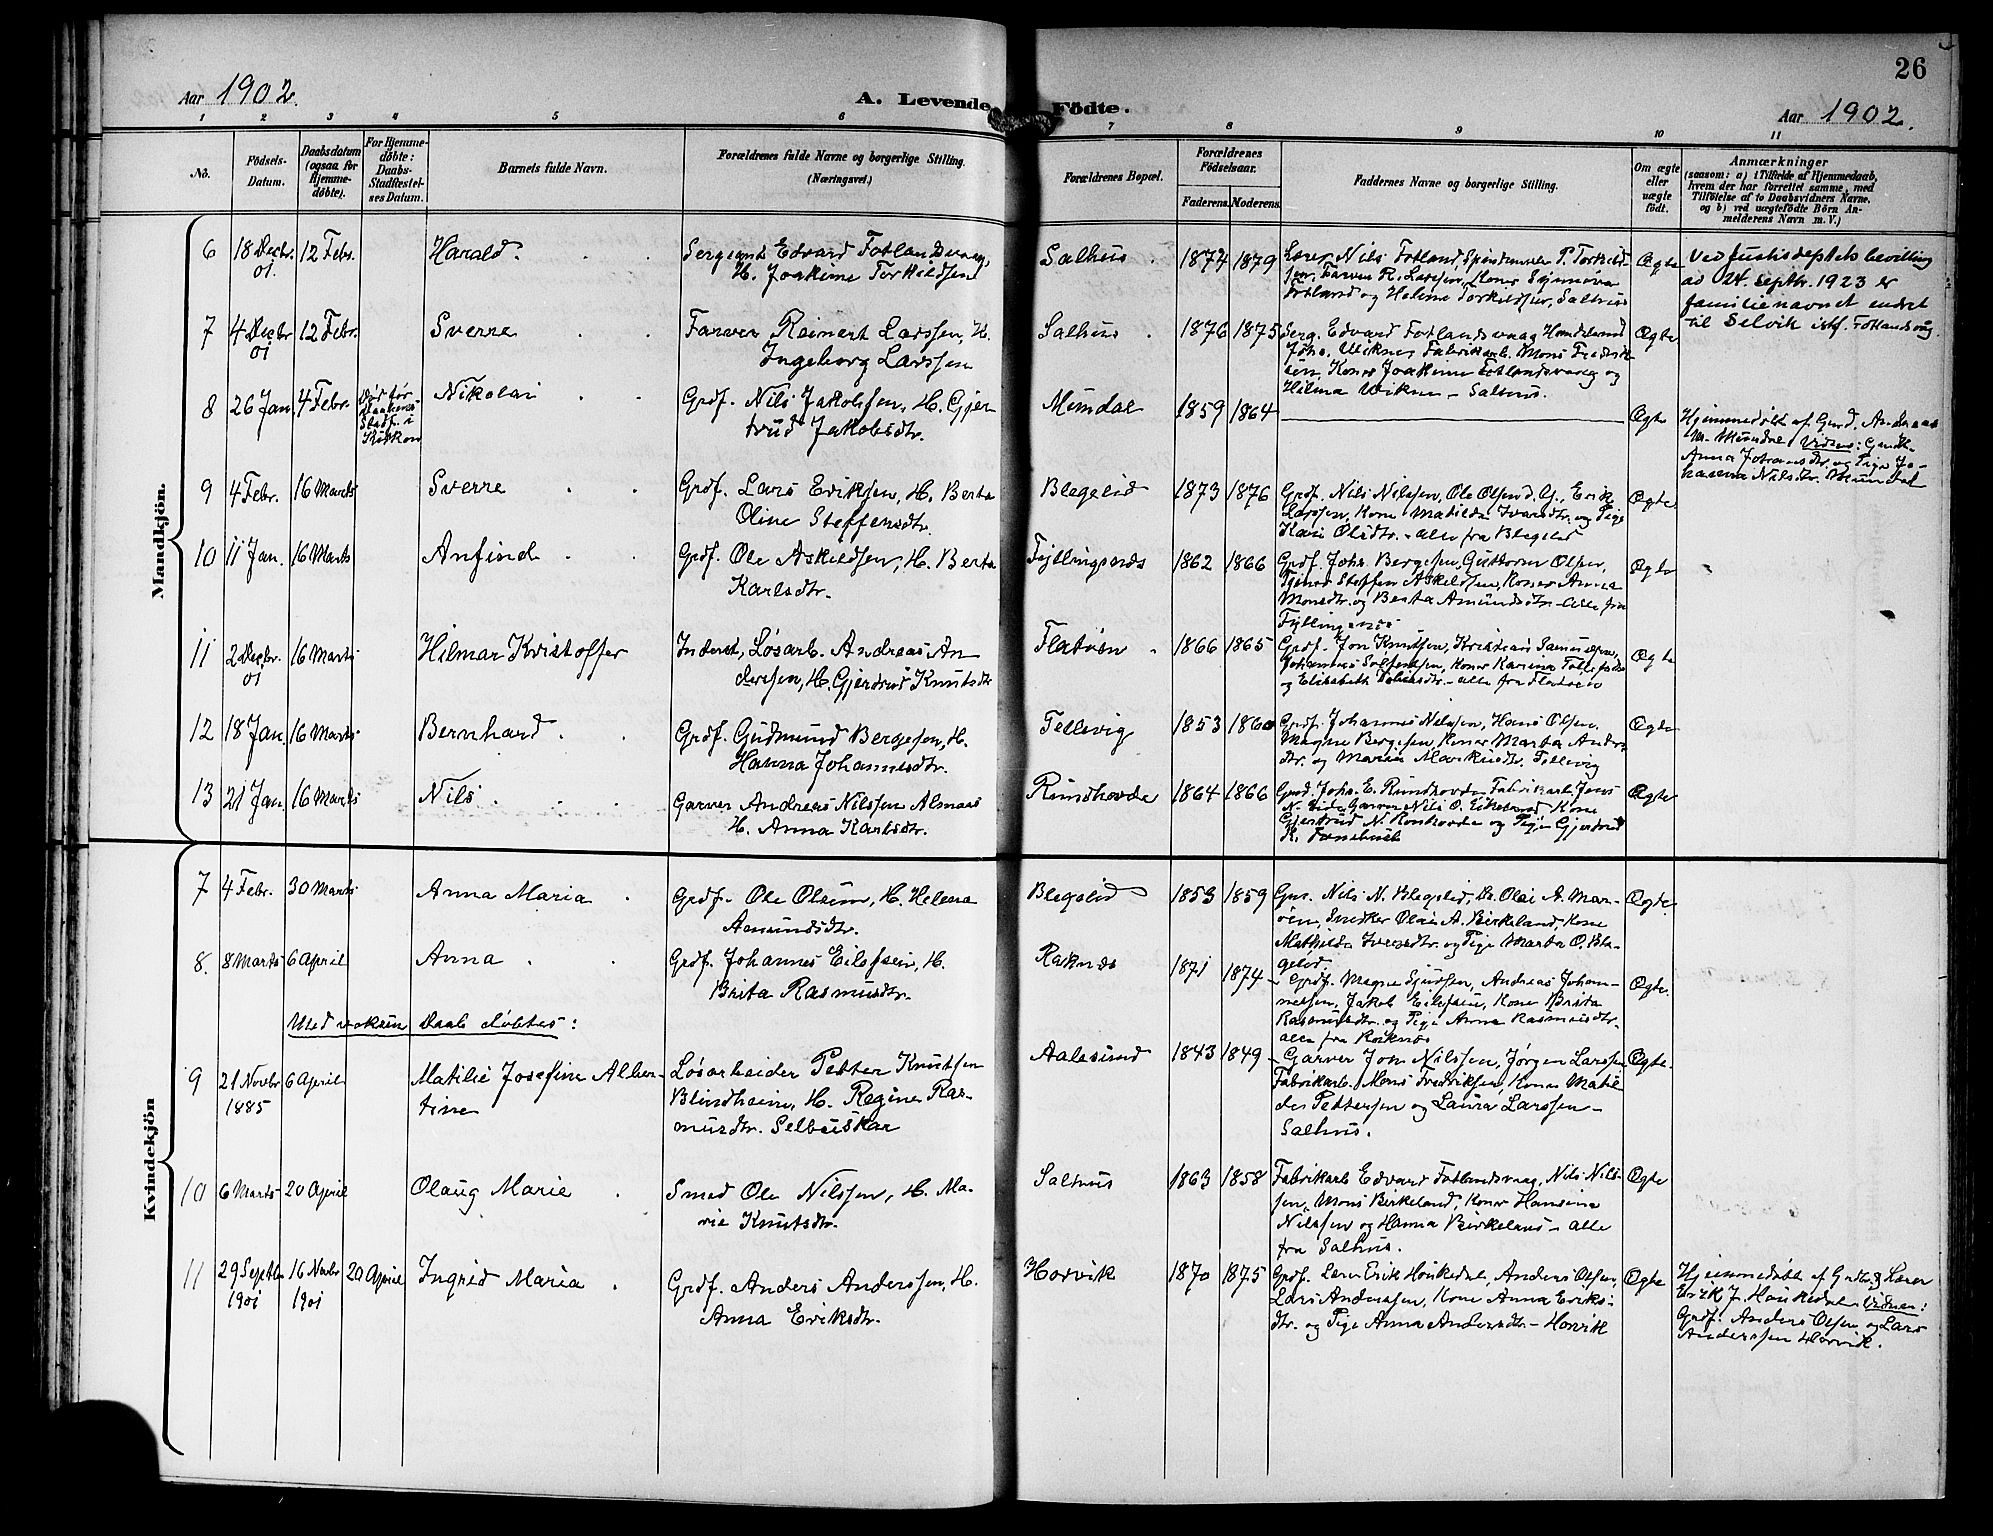 26
Aar 1902.
A. Levende Födte.
Aar 1902.
1 2 3 4 5 6 7 8 9 10 11
No.
Födsels-Datum.
Daabsdatum (ogsaa for Hjemme-döbte).
For Hjemme-döbte: Daabs-Stadfæstel-ses Datum.
Barnets fulde Navn.
Forældrenes fulde Navne og borgerlige Stilling. (Næringsvei.)
Forældrenes Bopæl.
Forældrenes Födselsaar.
Faderens. Moderens.
Faddernes Navne og borgerlige Stilling.
Om ægte eller uægte födt.
Anmærkninger
(saasom: a) i Tilfælde af Hjemmedaab, hvem der har forrettet samme, med Tilföielse af to Daabsvidners Navne, og b) ved uægtefödte Börn An-melderens Navn m. V.)
Mandkjön.
6 18 Decbr. 01. 12 Febr. Harald.
Sergeant Edvard Fotlandsvaag,
H. Joakime Torkildsen
Salhus. 1874 1879
Lærer Nils Fotland, Spindemester P. Torkild-
sen, Farver R. Larssen, Koner Synnøva
Fotland og Helene Torkildsen, Salhus
Ægte
Ved Justisdeptets bevilling
av 24. septbr. 1923 er
familienavnet endret
til Selvik istf. Fotlandsvåg
7 4 Decbr 01 12 Febr. Sverre
Farver Reinert Larssen, H.
Ingeborg Larssen
Salhus. 1876 1875
Serg. Edvard Fotlandsvaag
Johs. Wiknes Fabrikarb. Mons Fredrik-
sen, Koner Joakime Fotlandsvaag og
Hilma Wiknes – Salhus.
Ægte
8 26 Jan. 4 Febr. Nikolai
Død før
Stadf. i
Kirken
Grdf. Nils Jakobsen, H. Gjer
trud Jakobsdtr.
Mundal 1859 1864
Ægte
Hjemmedøbt af Grd. Andreas
Mundal Vidner:
Anna Johansdtr. og Pige Jo-
hanna Nilsdtr. Mundal
9 4 Febr. 16 Marts Sverre
Grdf. Lars Eriksen, H. Berta
Oline Steffensdtr.
Blegelid 1873 1876
Grdf. Nils Nilssen, Ole Olsen d. y., Erik
Larssen, Kone Matilda Ivarsdtr. og Pige
Kari Olsdtr. – alle fra Blegelid
Ægte
10 11 Jan. 16 Marts Anfind
Grdf. Ole Askildsen, H. Berta
Karlsdtr.
Fyllingsnes 1862 1866
Grdf. Johs. Bergesen, Guttorm Olsen,
Tjener Steffen Askildsen, Koner Anna
Monsdtr. og Berta Amundsdtr. – alle fra
Fyllingsnes
Ægte
11 2 Decbr. 01 16 Marts Hilmar Kristoffer
Inderst, Løsarb. Andreas An
derssen, H. Gjertrud Knutsdtr
Flatøen. 1866 1865
Grdf. Jon Knutsen, Kristian Samuelsen,
Johannes Salfestsen, Koner Karina
og Elisabeth – alle fra Flatøen
Ægte
12 18 Jan. 16 Marts Bernhard.
Grdf. Gudmund Bergesen, H.
Hanna Johannesdtr.
Tellevig 1853 1860
Grdf. Johannes Nilssen, Hans Olsen,
Magne Bergesen, Koner Marta Anders
dtr. og Maria Markusdtr. Tellevig
Ægte
13 21 Jan. 16 Marts Nils.
Garver Andreas Nilssen Almaas
H. Anna Karlsdtr.
Rundhovde 1864 1866
Grd. Johs. E. Rundhovde Fabrikarb. Jens
N. Eide Garver Nils O. Eikeland Kone
Gjertrud N. Rundhovde og Pige Gjertrud
K. Tonehest
Ægte
Kvindekjön
7 4 Febr. 30 Marts Anna Maria
Grdf. Ole Olsen, H. Helena
Amundsdtr.
Blegelid 1853 1859
Grs. Nils N. Blegelid, Do. Olai A. Mar-
øen, Snedker Olai A. Birkeland, Kone
Mathilde Iversdtr. og Pige Marta O. Ble-
gelid
Ægte.
8. 8 Marts 6 April Anna
Grdf. Johannes Eilefsen, H.
Brita Rasmusdtr.
Raknes 1871 1874
– Grdf. Magne Sjursen, Andreas Johan-
nessen, Jakob Eilefsen, Kone Brita
Rasmusdtr. og Pige Anna Rasmusdtr.
alle fra Raknes
Ægte.
Med voksen Daab døbtes:
9 21 Novbr 1885 6 April Matilie Josefine Alber-
tine
Løsarbeider Petter Knutsen
Blindheim, H. Regine Ras-
musdtr. Selbuskar
Aalesund 1843 1849
– Garver Jon Nilssen, Jørgen Larssen
Fabrikarb. Mons Fredriksen, Koner Matil
de Pettersen og Laura Larssen –
Salhus.
Ægte.
10 6 Marts 20 April Olaug Marie
Smed Ole Nilssen, H. Ma-
rie Knutsdtr.
Salhus 1863 1858
Fabrikarb Edvard Fotlandsvaag, Nils Nils-
sen, Mons Birkeland, Koner Hansina
Nilssen og Hanna Birkeland – alle
fra Salhus.
Ægte
11 29 Septbr 1901 16 Novbr 1901 20 April Ingrid Maria
Grdf. Anders Anderssen, H.
Anna Eriksdtr.
Horvik 1870 1875
Grdf. Lærer Erik Houkedal, Anders Olsen,
Lars Anderssen, Kone Anna Eriks-
dtr. og Pige Anna Andersdtr. – Horvik
Ægte
Hjemmedøbt af Grdbr. og Lærer
Erik J. Houkedal. Vidner:
Grdf. Anders Olsen og Lars
Anderssen Horvik.